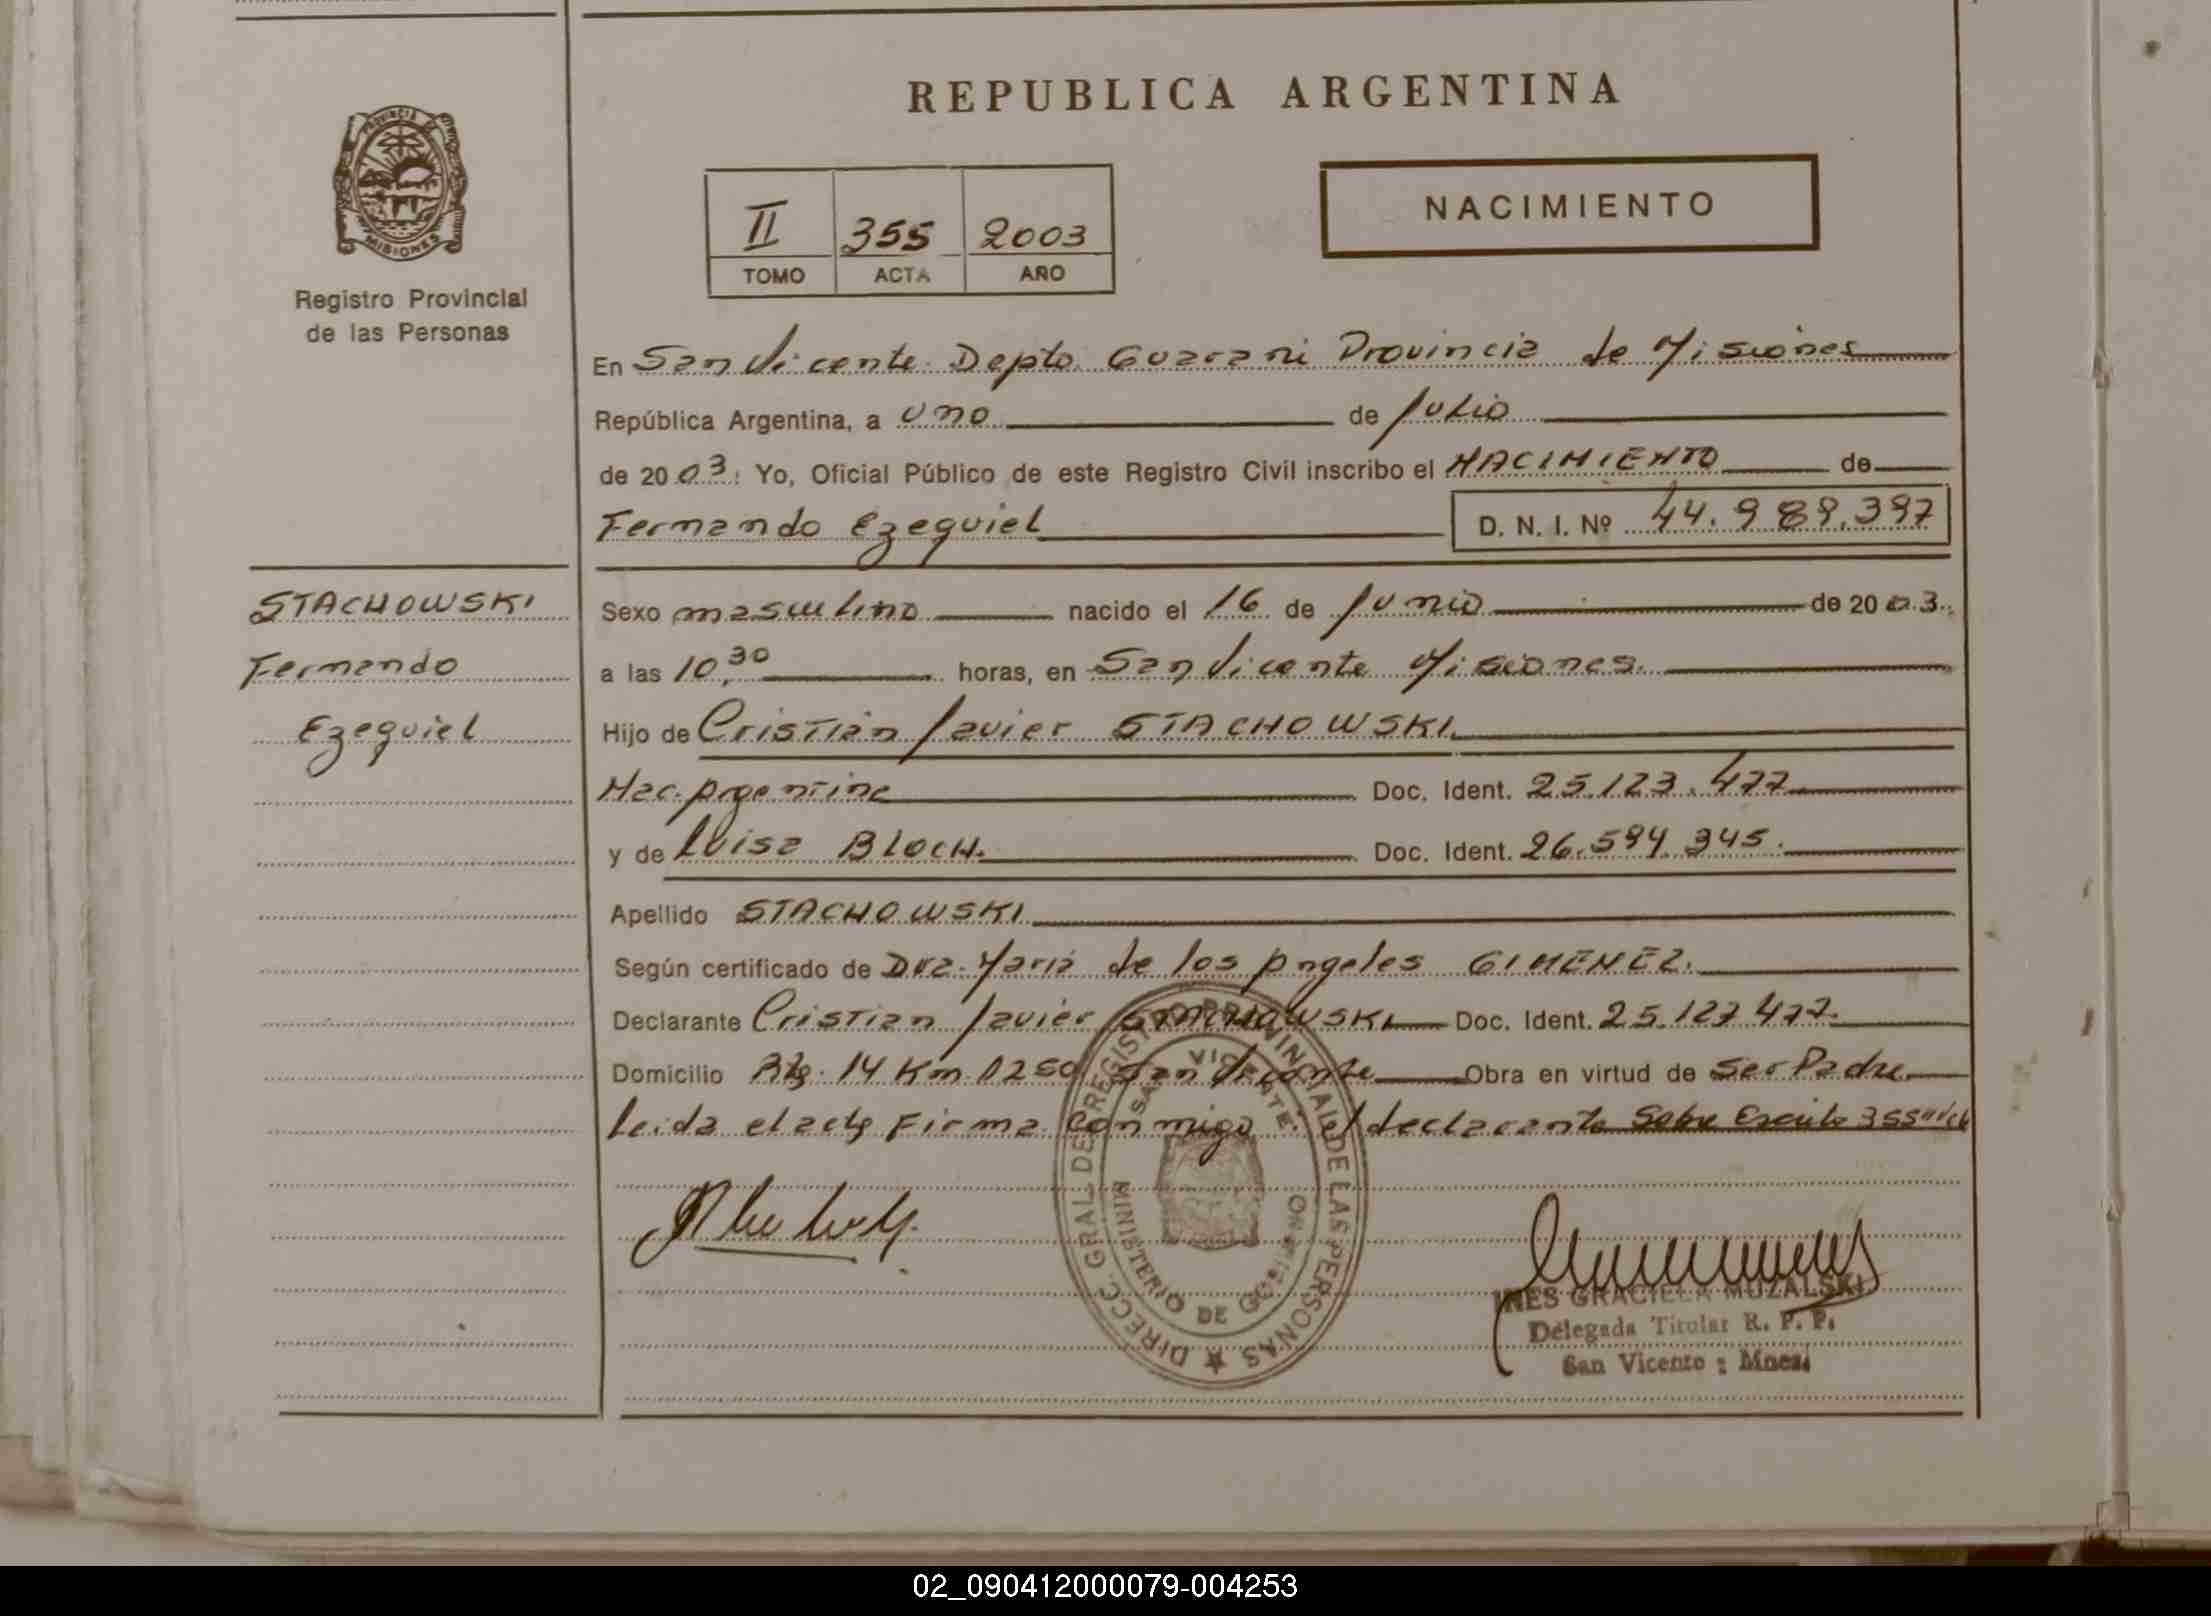 REPUBLICA ARGENTINA
PROVINCIA DE
MISIONES
Registro Provincial
de las Personas
II 355 2003
TOMO ACTA AÑO
NACIMIENTO
En San Vicente Depto. Guarani Provincia de Misiones
República Argentina, a uno de Julio
de 2003: Yo, Oficial Público de este Registro Civil inscribo el NACIMIENTO de
Fernando Ezequiel D. N. I. Nº 44.989.397
STACHOWSKI
Fernando
Ezequiel
Sexo masculino nacido el 16 de Junio de 2003.
a las 10,30 horas, en San Vicente Misiones.
Hijo de Cristian Javier STACHOWSKI.
Nac. Argentina Doc. Ident. 25.123.477.
y de Luisa BLOCH. Doc. Ident. 26.594.345.
Apellido STACHOWSKI
Según certificado de Dra. Maria de los Angeles GIMENEZ.
Declarante Cristian Javier STACHOWSKI Doc. Ident. 25.127.477.
Domicilio 14 Km. 1250 San Vicente Obra en virtud de Ser Padre
Leida el acta Firma Conmigo el declarante Sobre Escrito 355
DIRECC. GRAL. DEL REGISTRO PROVINCIAL DE LAS PERSONAS
SAN VICENTE
MINISTERIO DE GOBIERNO
INES GRACIELA MUZALSKI
Delegada Titular R. P. P.
San Vicente : Mnes.
02_090412000079-004253